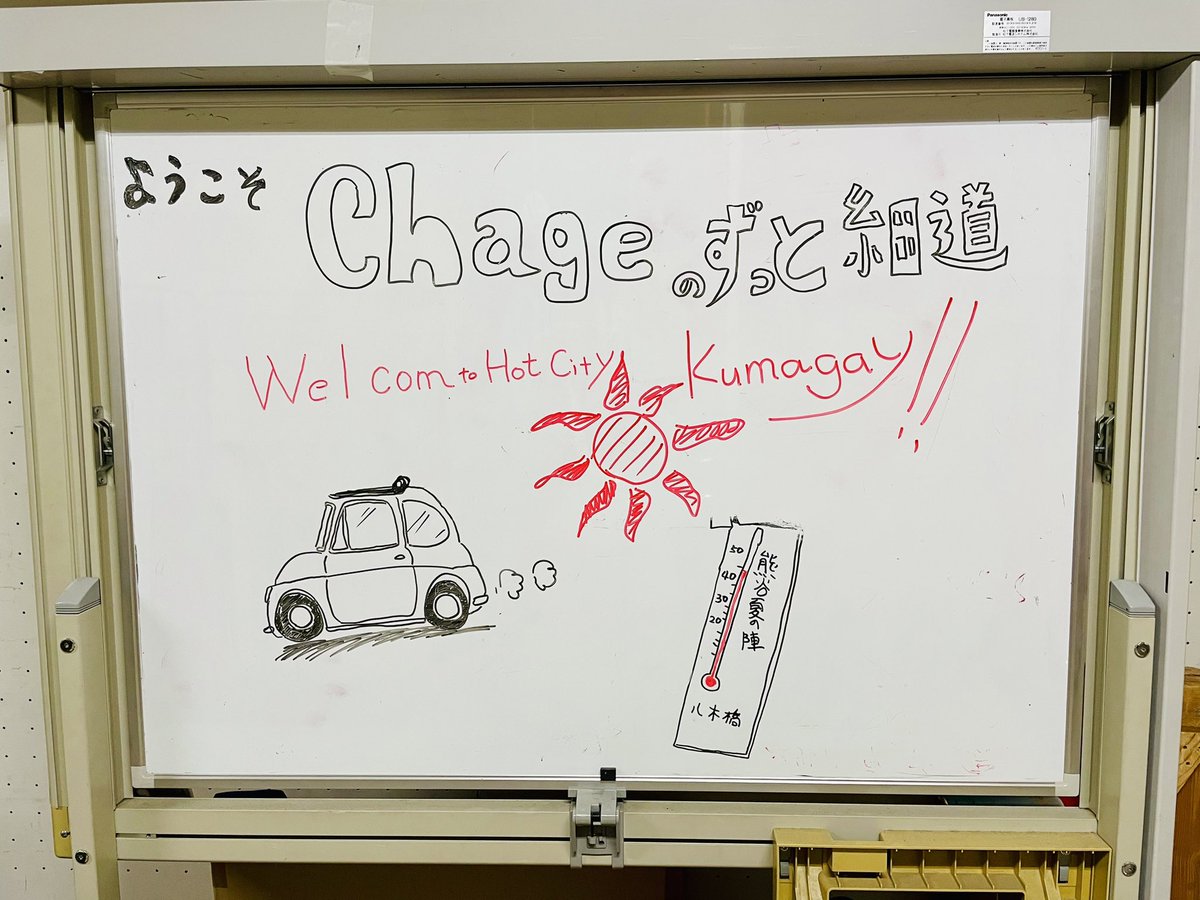 ようこそ
Chageのずっと細道
Welcom to Hot City Kumagay!!
50
40
30
20
熊谷夏の陣
八木橋
Panasonic